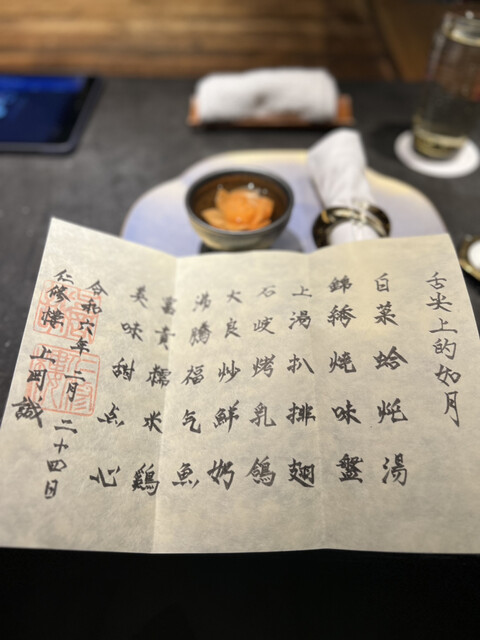 舌尖上的如月
白菜蛤炖湯
錦綉焼味盤
上湯扒排翅
石岐烤乳鴿
大良炒鮮奶
沸騰福气魚
富貴糯米鷄
美味甜点心
令和六年二月二十四日
仁修樓 上岡誠